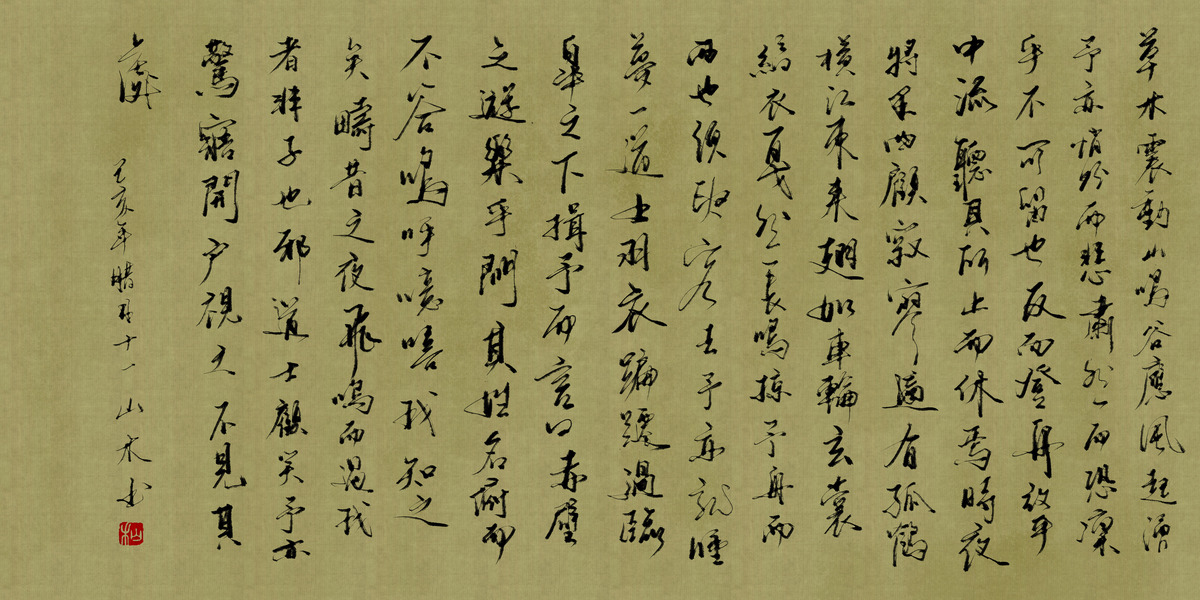 草木震動山鳴谷應風起湧
予亦悄然而悲肅然而恐凜
乎不可留也反而登舟放乎
中流聽其所止而休焉時夜
將半四顧寂寥適有孤鶴
橫江東來翅如車輪玄裳
縞衣戛然長鳴掠予舟而
西也須臾客去予亦就睡
夢一道士羽衣蹁躚過臨
皋之下揖予而言曰赤壁
之遊樂乎問其姓名俯而
不答嗚呼噫嘻我知之
矣疇昔之夜飛鳴而過我
者非子也邪道士顧笑予亦
驚寤開戶視之不見其
處
己亥年腊月十一山木書
山木